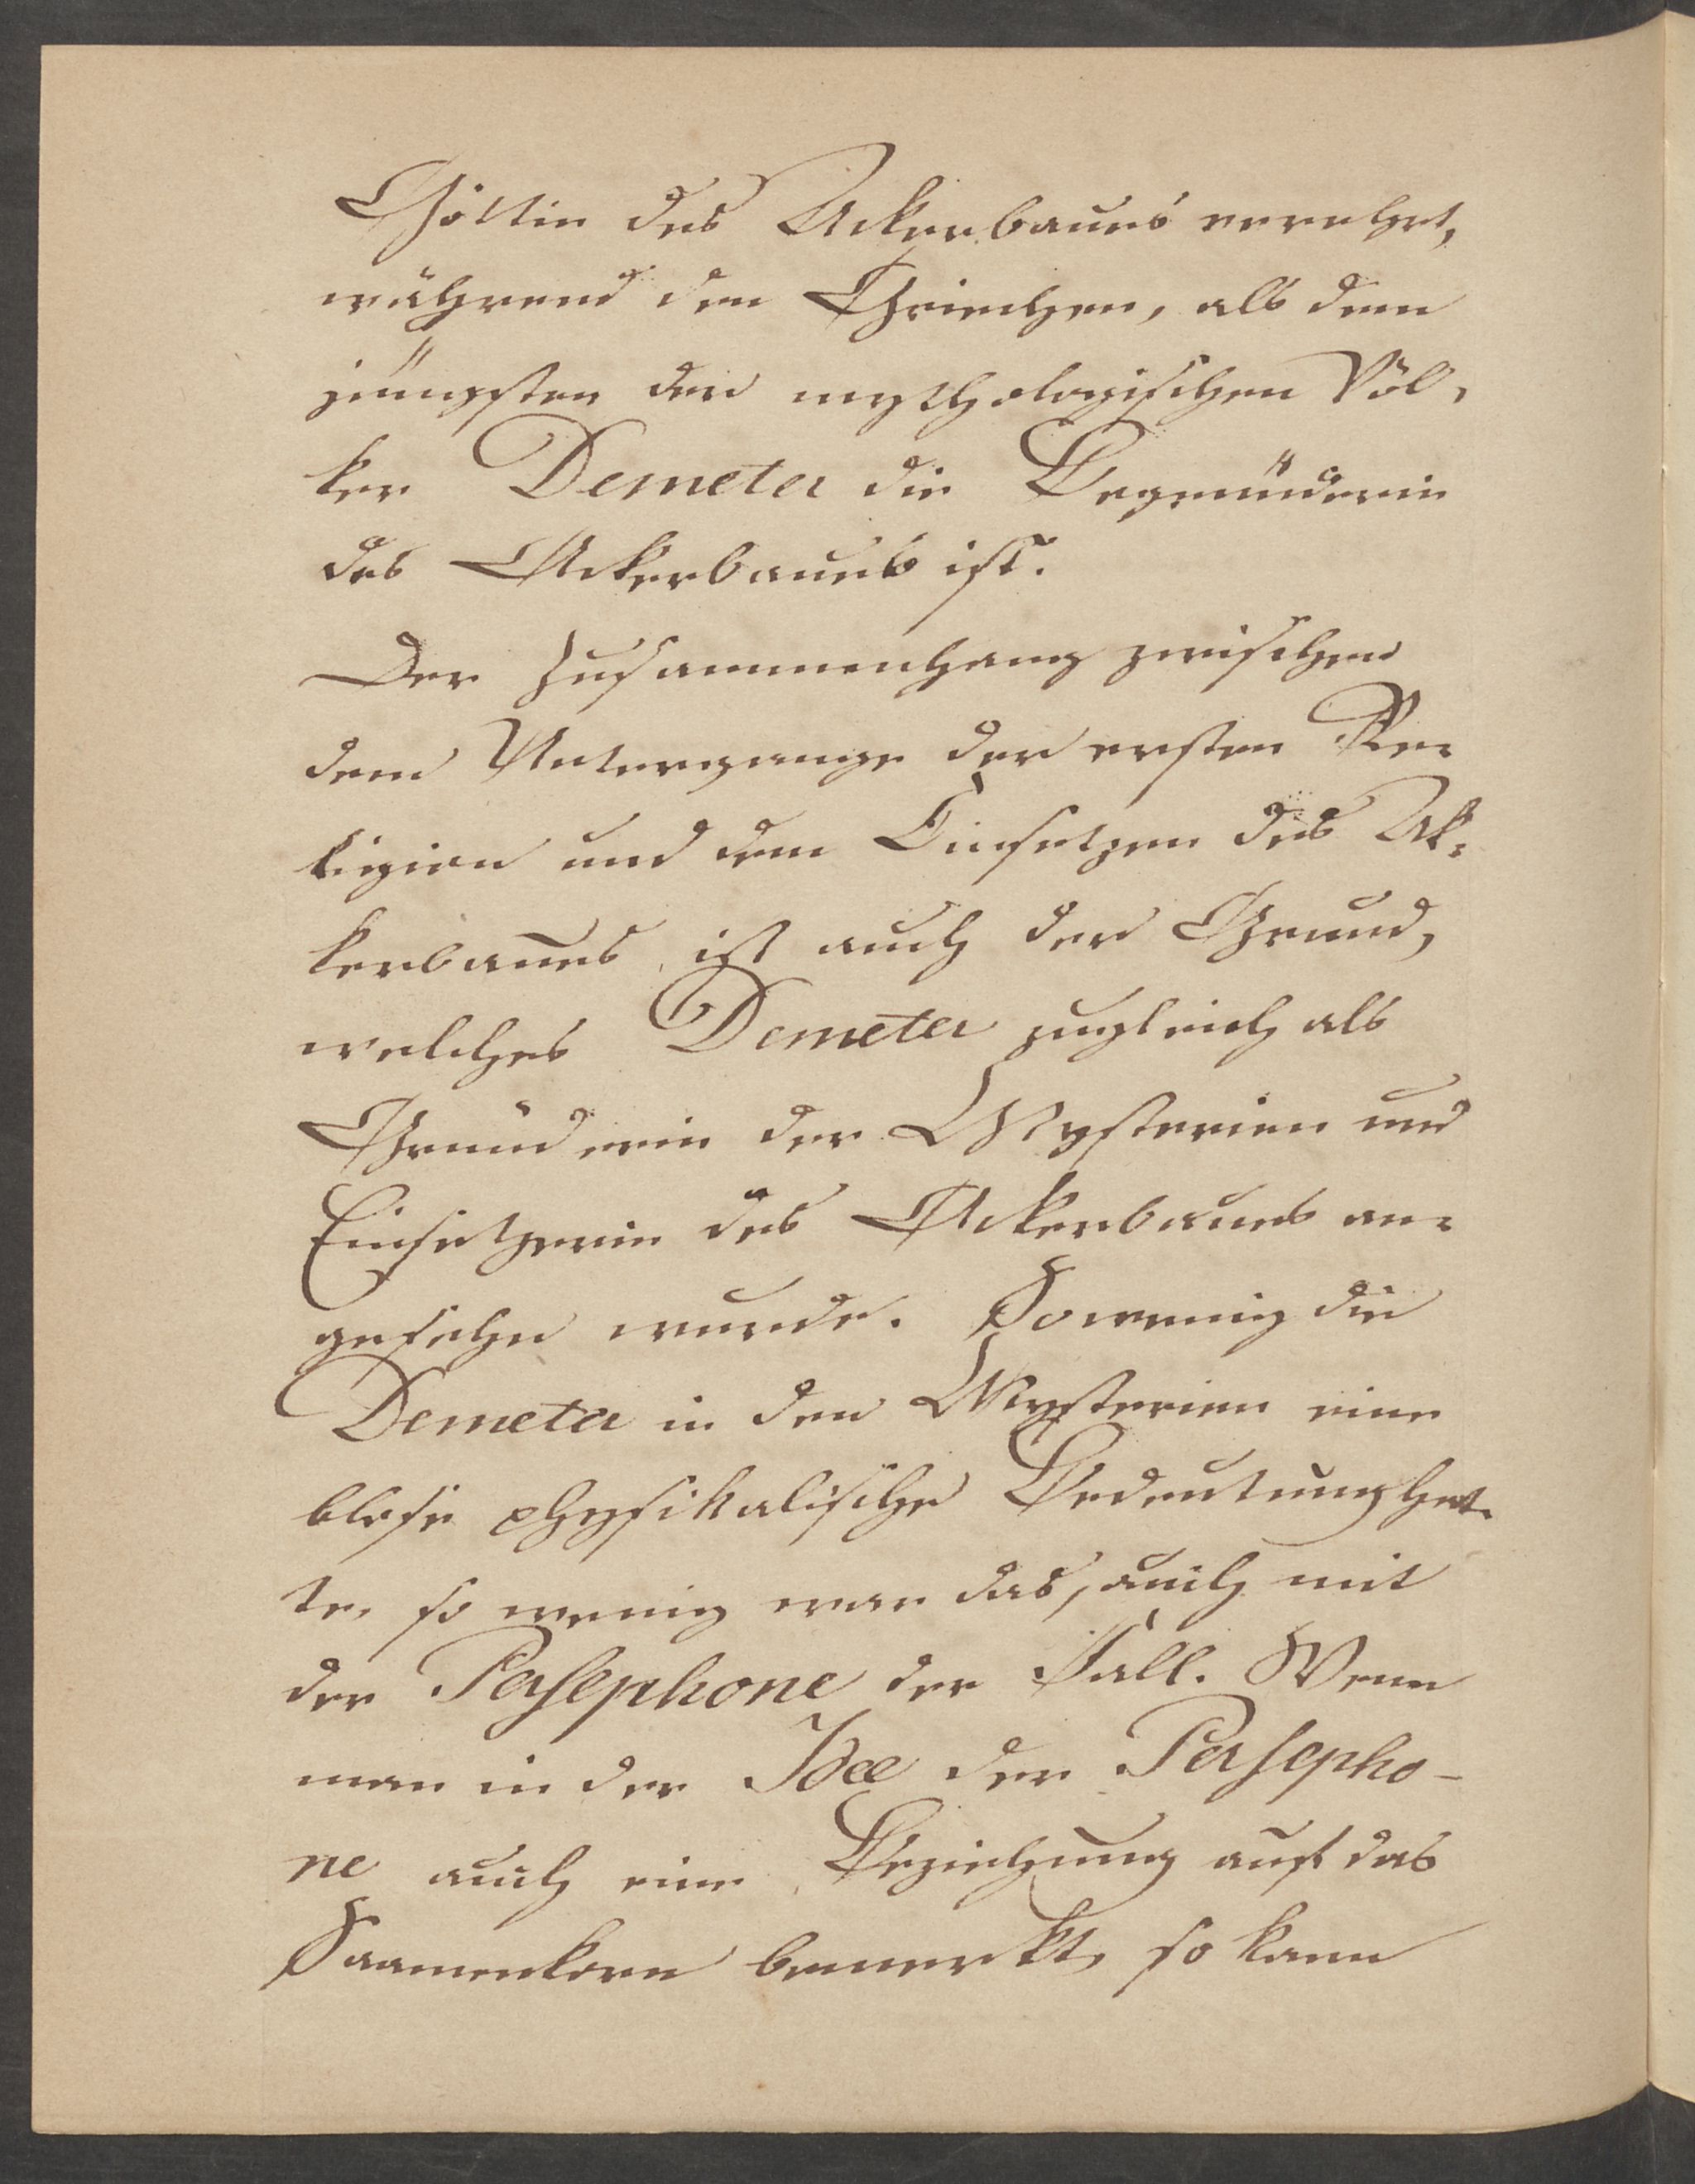 Göttin des Ackerbaues verehrt,
während den Griechen, als dem
jüngsten der mythologischen Völ-
ker Demeter die Begründerin
des Ackerbaues ist.
Der Zusammenhang zwischen
dem Untergange der ersten Re-
ligion und dem Einsetzen des Ak-
kerbaues ist auch der Grund,
welches Demeter zugleich als
Gründerin der Mysterien und
Einsetzerin des Ackerbaues an-
gesehn wurde. Sowenig die
Demeter in den Mysterien eine
blose physikalische Bedeutung hat-
te, so wenig war das, auch mit
der Persephone der Fall. Wenn
man in der Idee der Persepho-
ne auch eine Beziehung auf das
Saamenkorn bemerkt, so kann